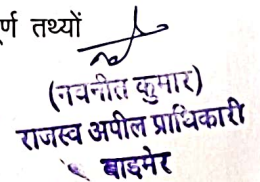 र्ण तथ्यों
(नवनीत कुमार)
राजस्व अपील प्राधिकारी
बाड़मेर